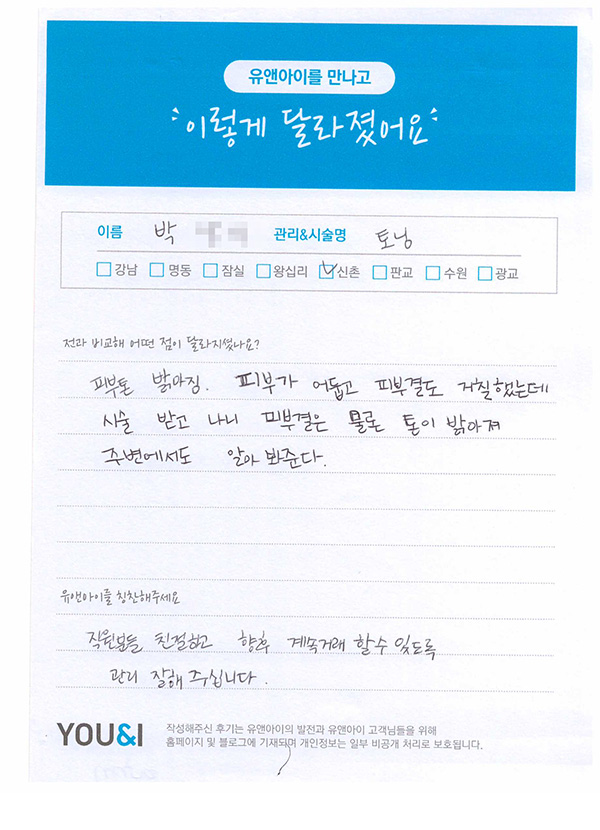 유앤아이를 만나고
이렇게 달라졌어요
이름 박 관리&시술명 토닝
강남 명동 잠실 왕십리 신촌 판교 수원 광교
전과 비교해 어떤 점이 달라지셨나요?
피부톤 밝아짐. 피부가 어둡고 피부결도 거칠했는데
시술 받고 나니 피부결은 물론 톤이 밝아져
주변에서도 알아 봐준다.
유앤아이를 칭찬해주세요
직원분들 친절하고 향후 계속거래 할수 있도록
관리 잘해 주십니다.
YOU&I
작성해주신 후기는 유앤아이의 발전과 유앤아이 고객님들을 위해
홈페이지 및 블로그에 기재되며 개인정보는 일부 비공개 처리로 보호됩니다.